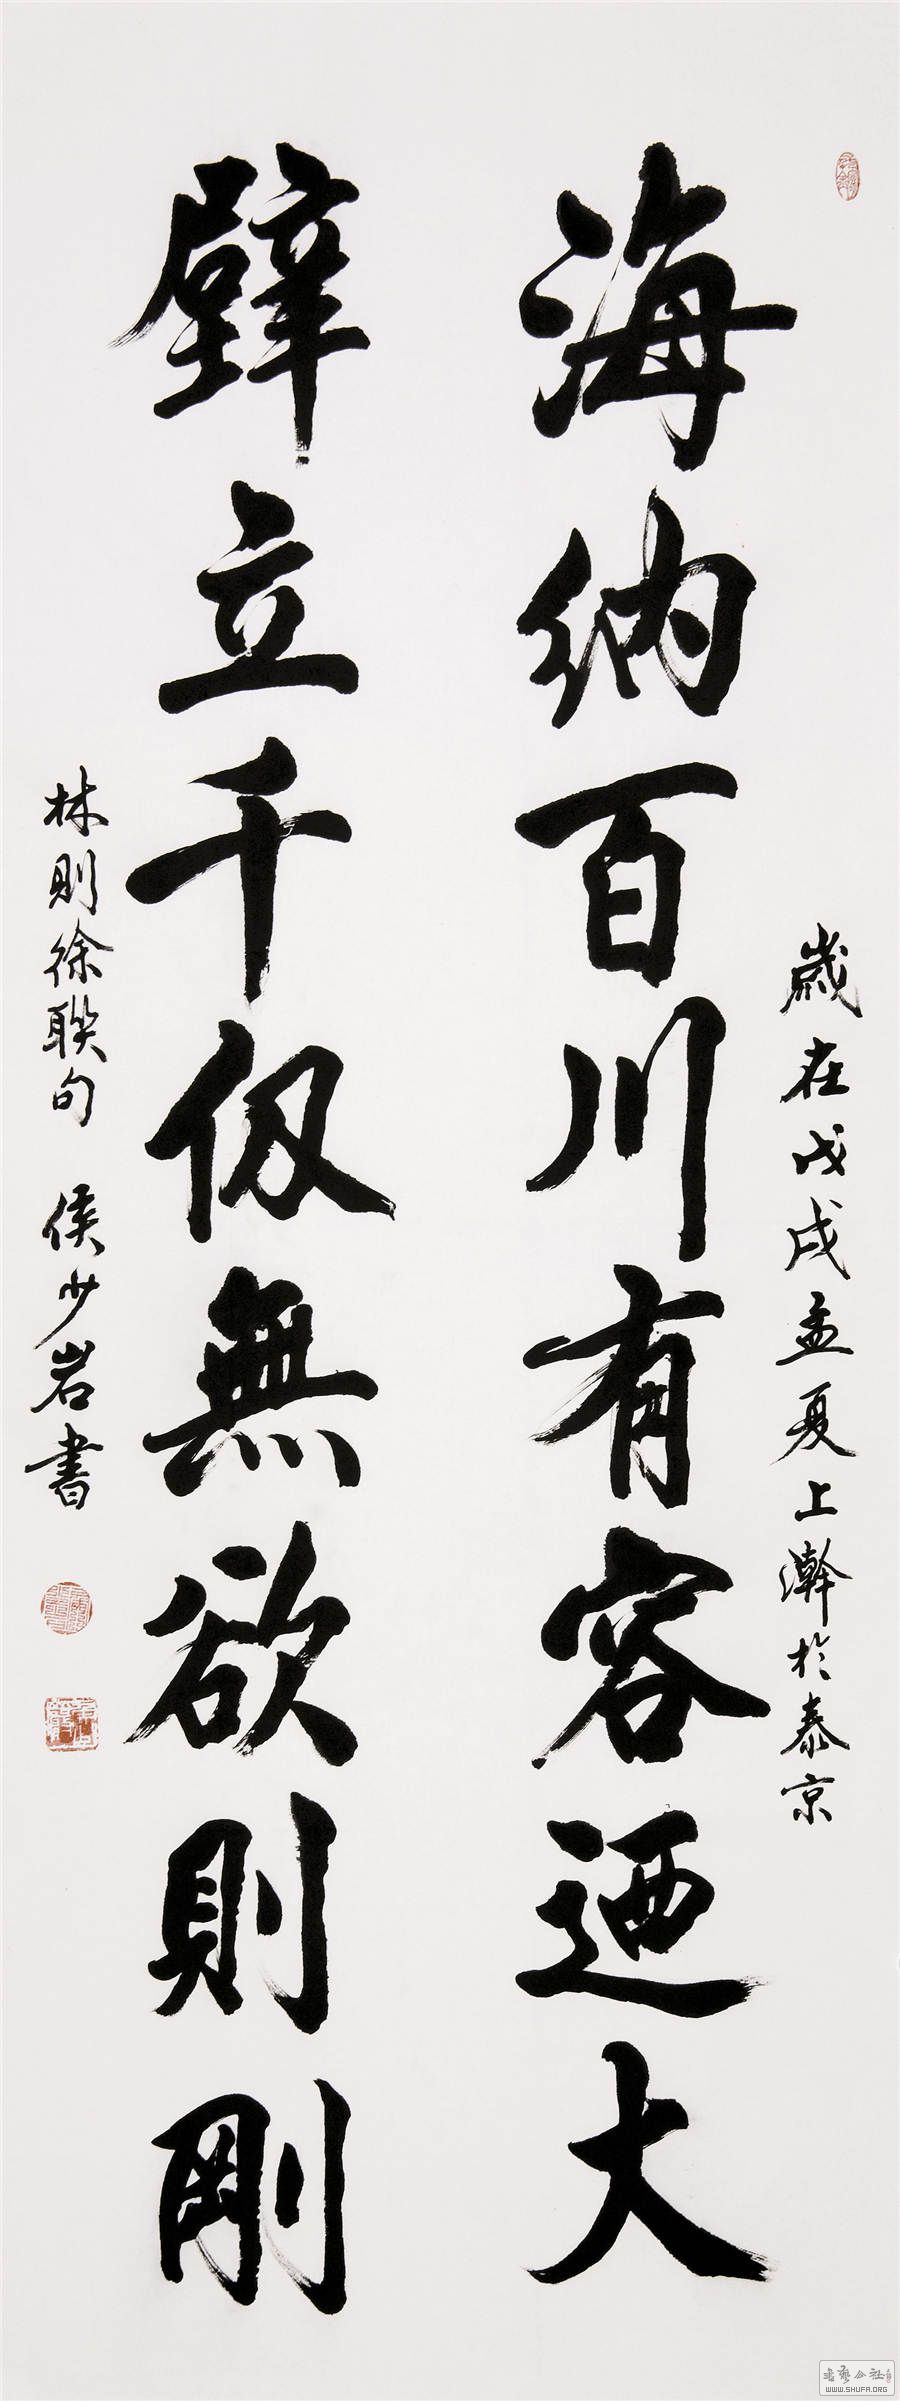 歲在戊戌孟夏上澣於泰京
海納百川有容迺大
壁立千仞無欲則剛
林則徐聯句 侯少岩書
書藝公社
WWW.SHUFA.ORG